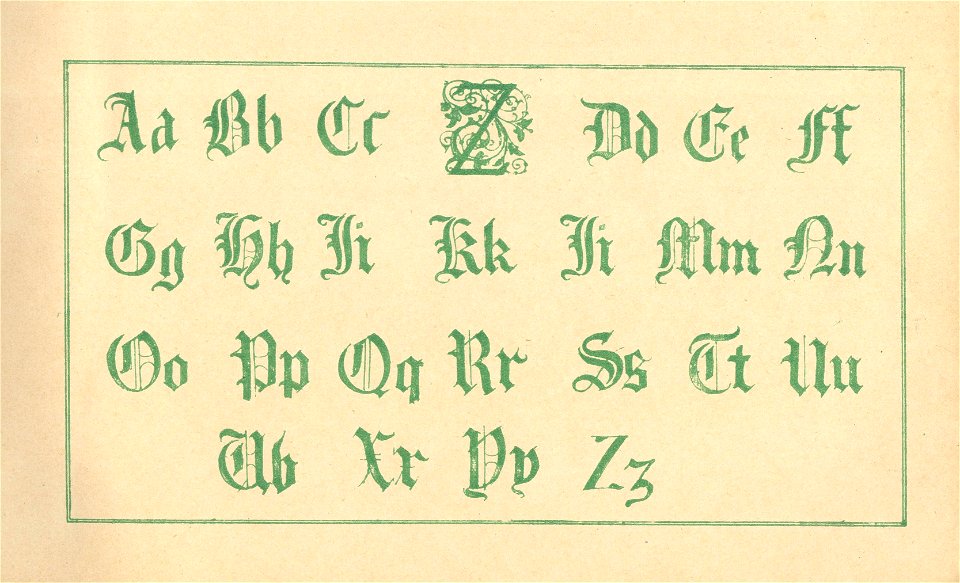 Aa Bb Cc Z Dd Ee Ff
Gg Hh Ii Kk Ii Mm Nn
Oo Pp Qq Rr Ss Tt Uu
Vv Xx Yy Zz